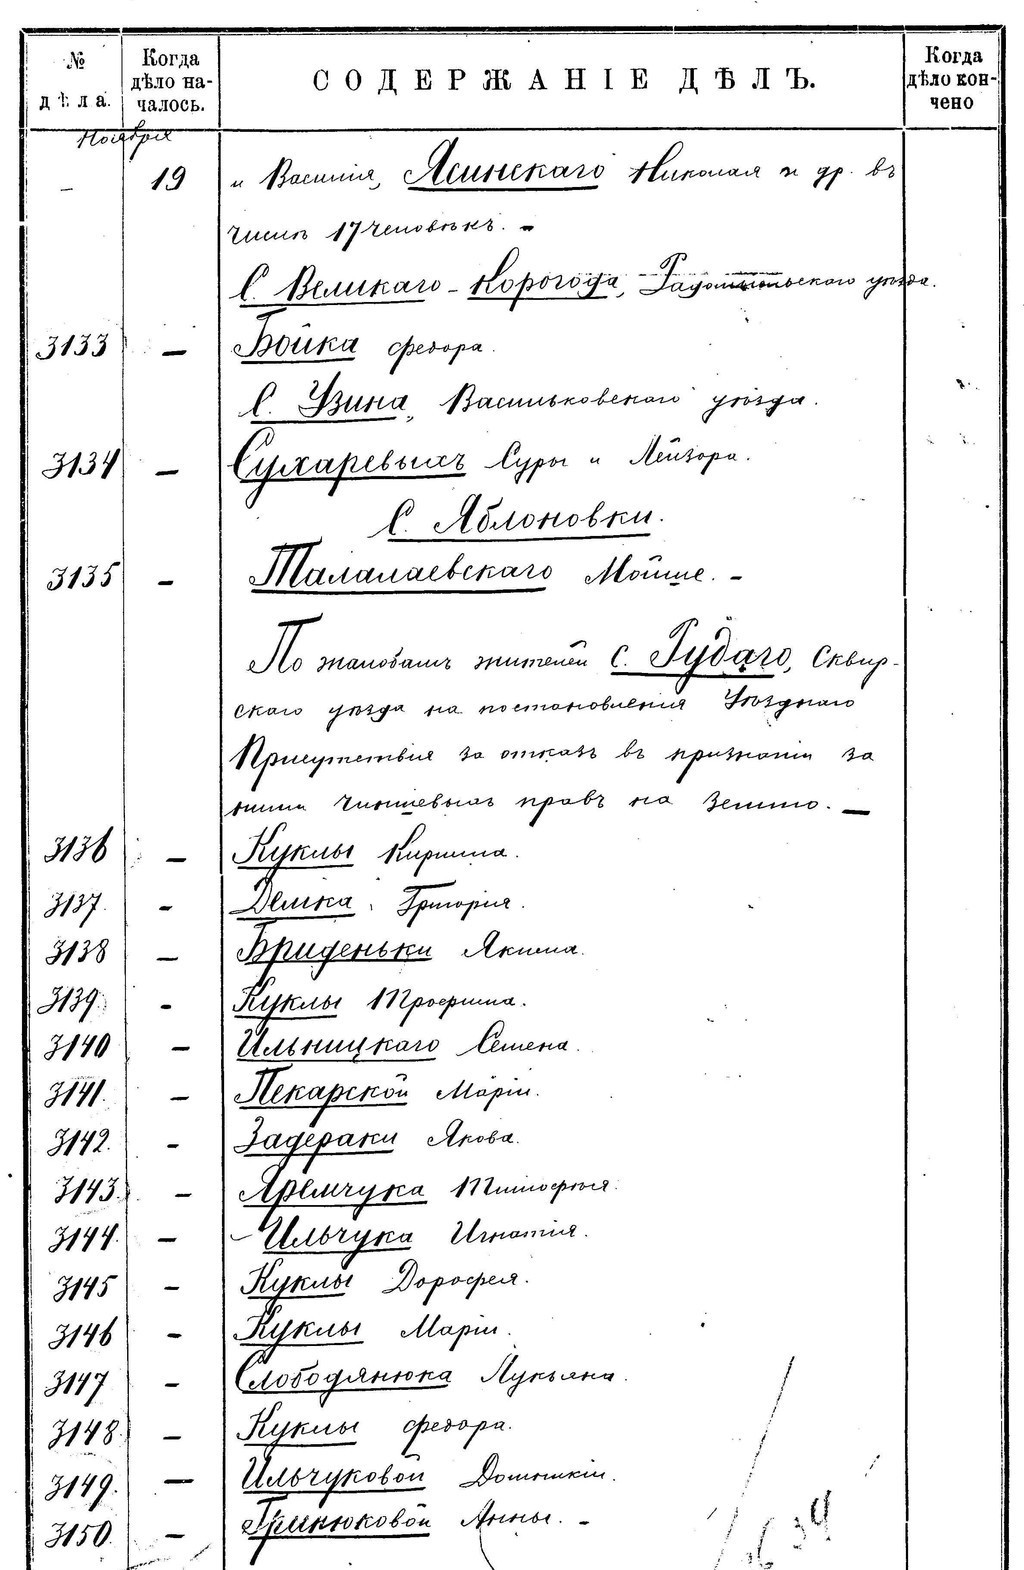 № дѣла.
Когда дѣло началось.
СОДЕРЖАНІЕ ДѢЛЪ.
Когда дѣло кончено
Ноября
– 19 и Василія, Ясинскаго Николая и др. въ
числѣ 17 человѣкъ. –
С. Великаго-Корогода, Радомысльскаго уѣзда.
3133 – Бойка Федора.
С. Узина, Васильковскаго уѣзда.
3134 – Сухаревыхъ Суры и Лейзора.
С. Яблоновки.
3135 – Талалаевскаго Мойше. –
По жалобамъ жителей с. Рудаго, Сквир-
скаго уѣзда на постановленія Уѣзднаго
Присутствія за отказъ въ признаніи за
ними чиншевыхъ правъ на землю. –
3136 – Куклы Кирилла.
3137. – Демка Григорія.
3138 – Бриденьки Якима.
3139. – Куклы Трофима.
3140 – Ильницкаго Семена.
3141. – Пекарской Маріи.
3142. – Задераки Якова.
3143. – Яремчука Тимофея.
3144. – Ильчука Игнатія.
3145 – Куклы Дорофея.
3146 – Куклы Маріи.
3147 – Слободянюка Лукьяна.
3148. – Куклы Федора.
3149. – Ильчуковой Домникіи.
3150. – Гринюковой Анны. –